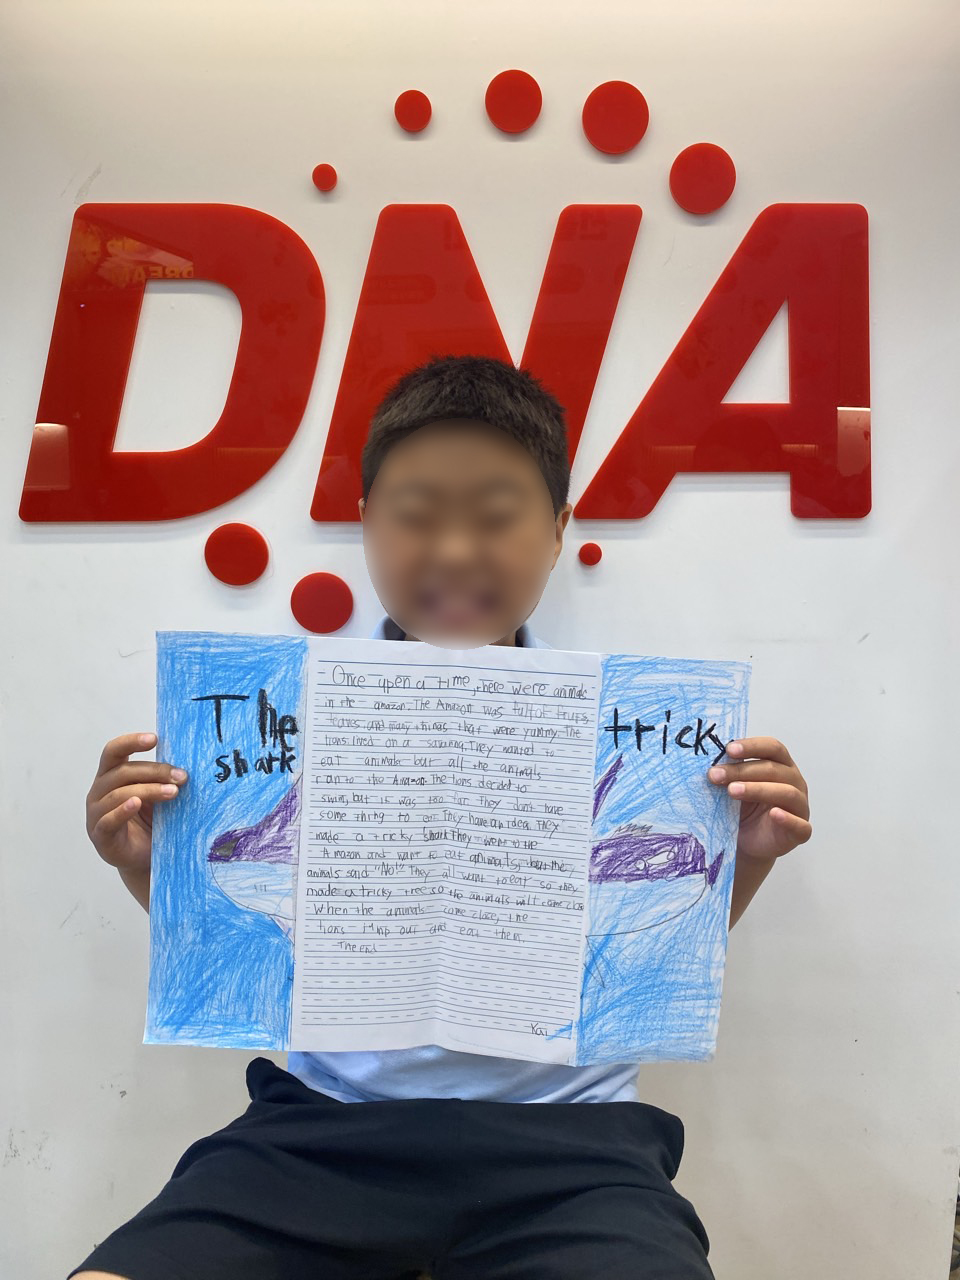 DNA
The
shark
tricky
Once upon a time, there were animals
in the amazon. The Amazon was full of fruits,
leaves, and many things that were yummy. The
lions lived on a savanna. They wanted to
eat animals but all the animals
ran to the Amazon. The lions decided to
swim, but it was too far. They don't have
some thing to eat. They have an idea. They
made a tricky shark. They went to the
Amazon and want to eat animals, the
animals said "No!" They all want to eat so they
made a tricky tree so the animals will come close
When the animals come close, the
lions jump out and eat them.
The end
Kai